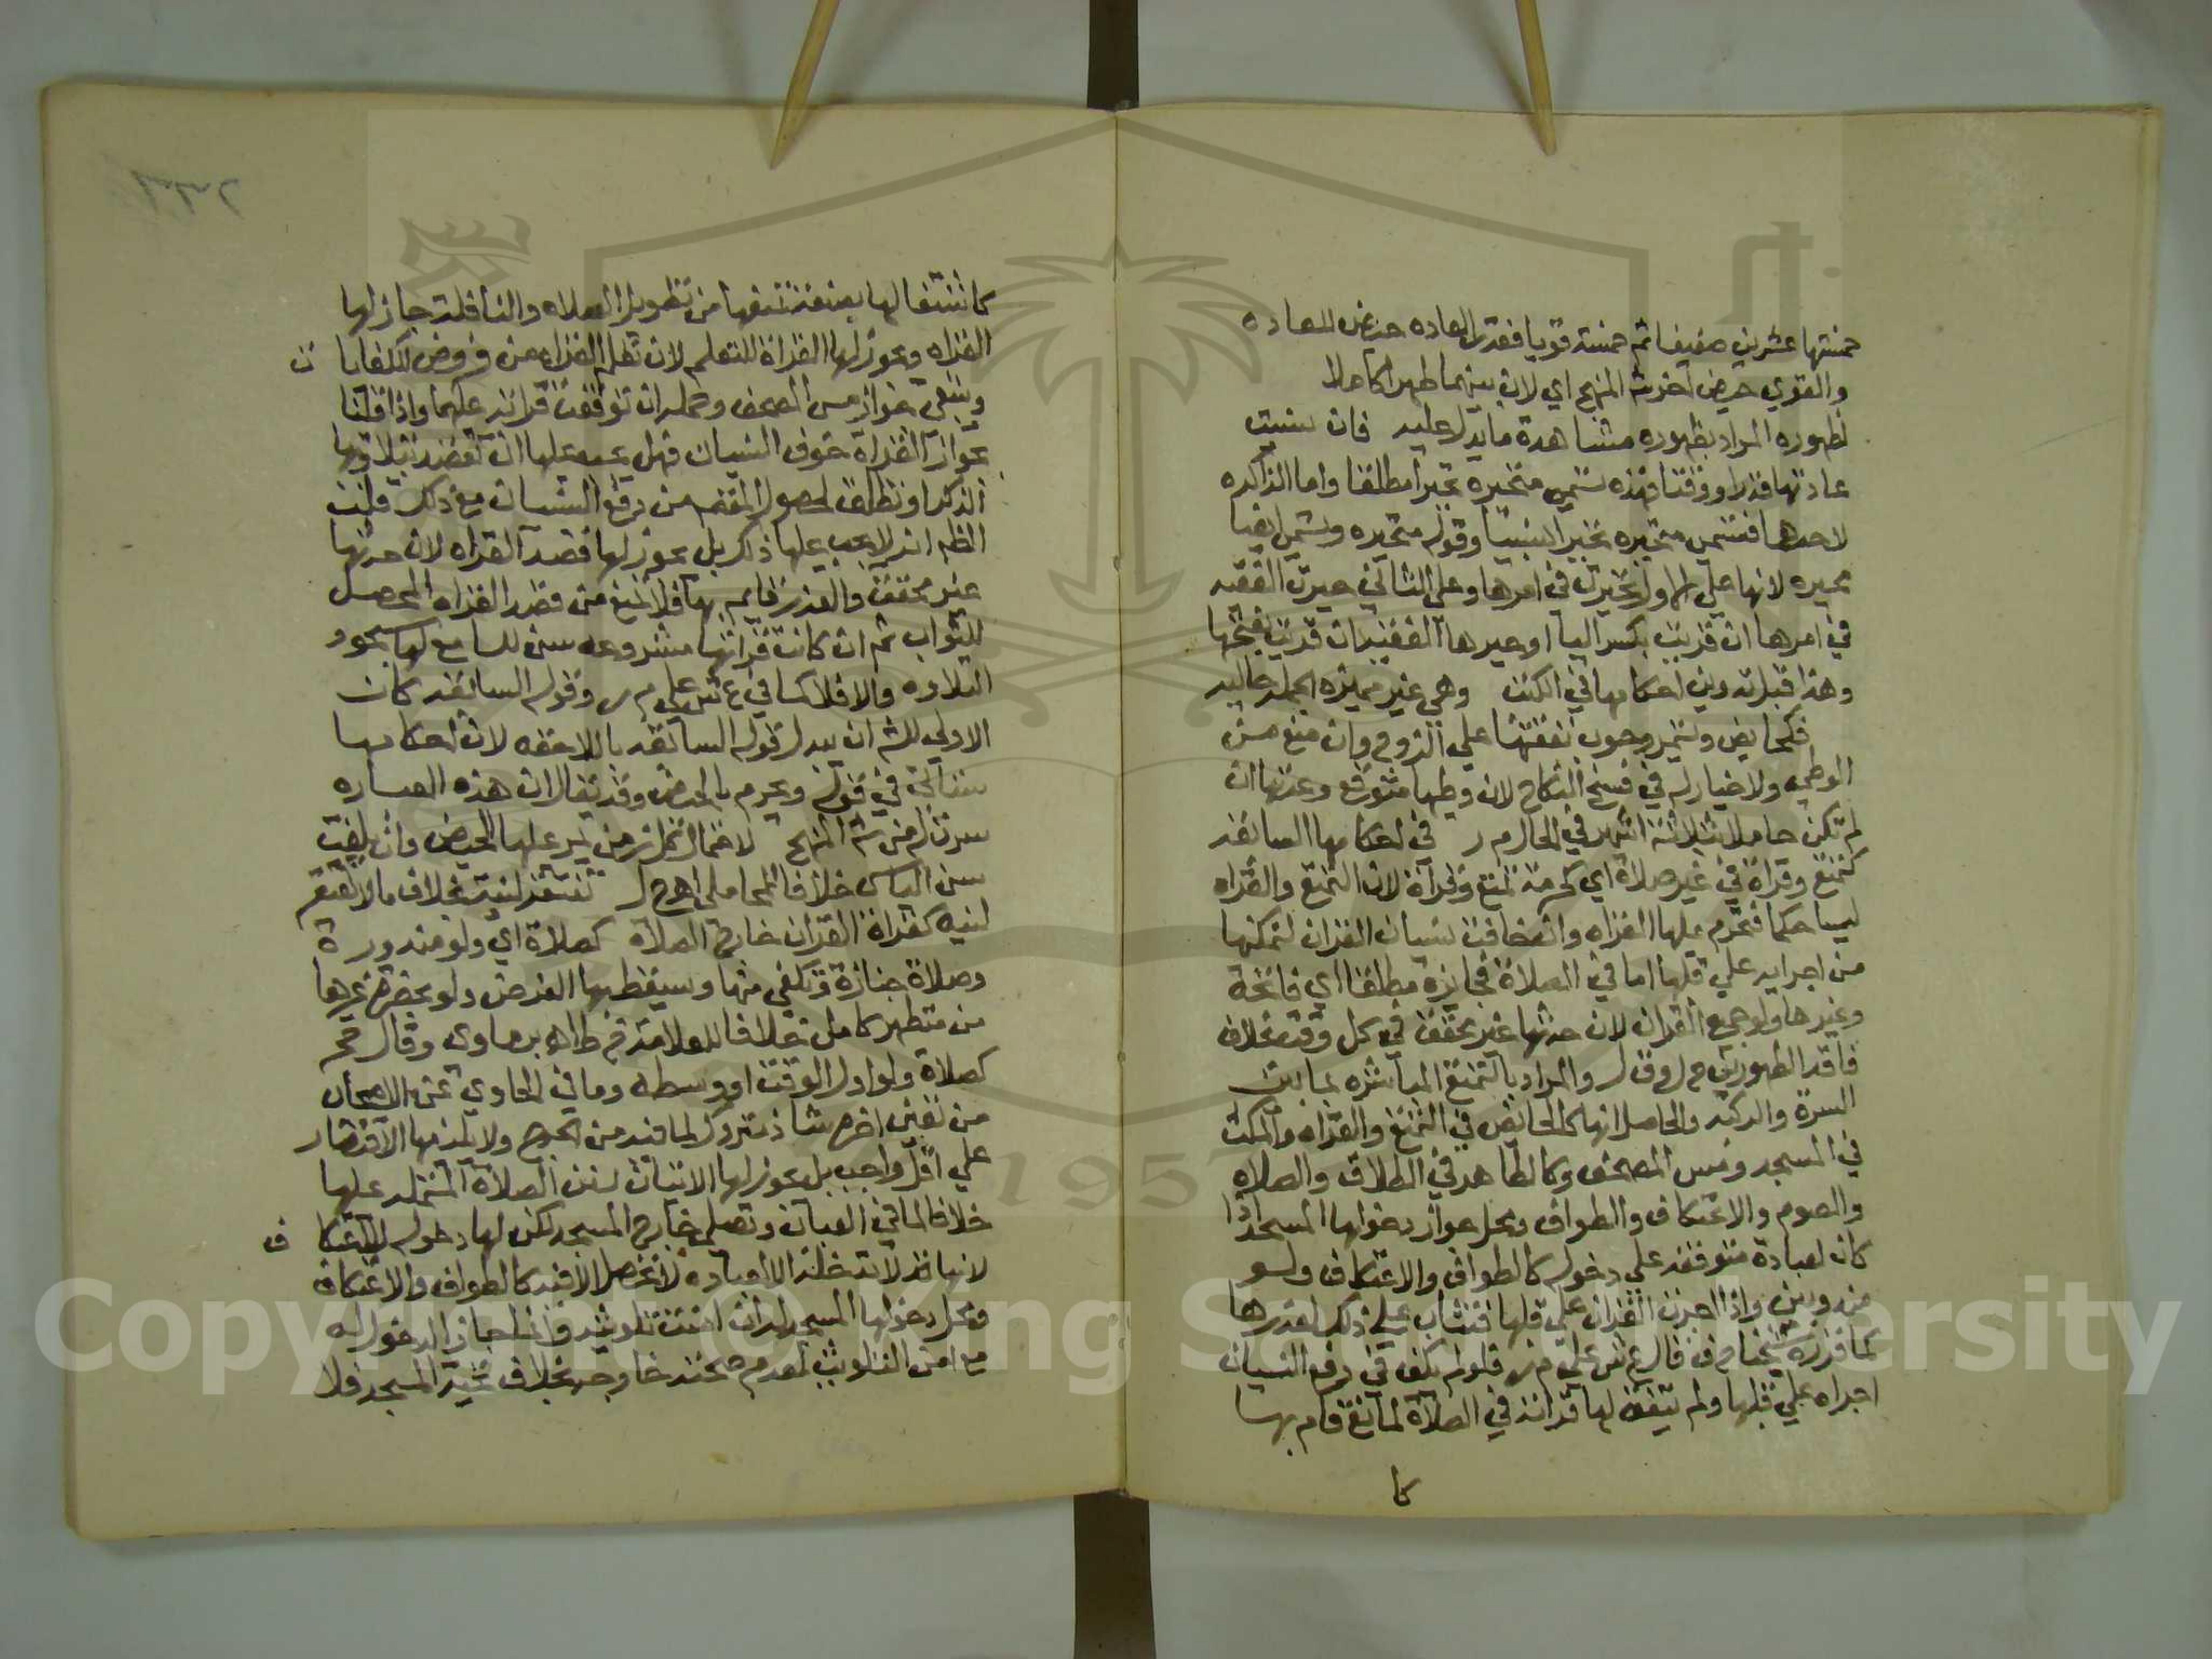 خمستها عشرين ضعيفا ثم خمسة قويا فقدر العاده حيض للعاده
والقوي حيض اخر شرح المنهج اي لان بينهما طهرا كاملا
لظهوره المراد بظهوره مشاهدة ما يدل عليه فان نسيت
عادتها قدرا ووقتا فهذه تسمي متحيره تحيرا مطلقا واما الذاكره
لاحدهما فتسمى متحيره تحيرا نسبيا وقوله متحيره وتسمى ايضا
محيره لانها علي الاول تحيرت في امرها وعلى الثاني حيرت الفقيه
في امرها ان قريت بكسر اليا او حيرها الفقيه ان قريت بفتحها
وهذا قبل تدوين احكامها في الكتب وهي غير مميزه الجمله حاليه
فكحايض وتستمر وجوب نفقتها علي الزوج وان منع من
الوطي ولا خيار له في فسخ النكاح لان وطيها متوقع وعدتها ان
لم تكن حاملا بثلاثة اشهر في الحال م ر في احكامها السابقه
كتمتع وقراة في غير صلاة اي كحرمة تمتع وقراة لان التمتع والقراه
ليسا حكما فتحرم عليها القراه وان خافت نسيان القران لتمكنها
من اجرايه علي قلبها اما في الصلاة فجايزة مطلقا اي فاتحة
وغيرها ولو جميع القران لان حدثها غير محقق في كل وقت بخلاف
فاقد الطهورين ح ل و ق ل والمراد بالتمتع المباشره لما بين
السرة والركبه والحاصل انها كالحائض في التمتع والقراه والمكث
في المسجد ومس المصحف وكالطاهر في الطلاق والصلاه
والصوم والاعتكاف والطواف ومحل جواز دخولها المسجد اذا
كان لعبادة متوقفه علي دخوله كالطواف والاعتكاف ولو
مندوبين واذا اجرت القران علي قلبها فتثاب علي ذلك لعذرها
كما قرره شيخنا ح ف قال ع ش علي م ر فلو لم يكف في دفع النسيان
اجراه علي قلبها ولم يتفق لها قرانه في الصلاة لمانع قام بها
كا
٢٣٦
كاشتغالها بصنعة تمنعها من تطويل الصلاه والنافلة جاز لها
القراه ويجوز لها القراة للتعلم لان تعلم القراه من فروض الكفايات
وينبغي جواز مس المصحف وحمله ان توقفت قرانه عليهما واذا قلنا
بجواز القراة خوف النسيان فهل يجب عليها ان تقصد بتلاوتها
الذكر او تطلق لحصول المقصد من دفع النسيان مع ذلك قلت
الظم انه لا يجب عليها ذلك بل يجوز لها قصد القراه لان حدثها
غير محقق والعذر قايم بها فلا مانع من قصد القراه المحصل
للثواب ثم ان كانت قراتها مشروعه سن للسامع لها سجود
التلاوه والا فلا كما في ع ش علي م ر وقوله السابقه كان
الاولي للش ان يبدل قوله السابقه باللاحقه لان احكامها
ستاتي في قوله ويحرم بالحيض وقد يقال ان هذه العباره
سرت له من شرح المنهج لاحتمال كل زمن يمر عليها الحيض وان بلغت
سن الياس خلافا للمحاملي اهـ ح ل تفتقر لنية بخلاف ما لا يفتقر
لنيه كقراة القران خارج الصلاة كصلاة اي ولو مندورة
وصلاة جنازة وتكفي منها ويسقط بها الفرض ولو بحضرة غيرها
من متطهر كامل خلافا للعلامة م ر ط اهـ برماوي وقال حج
كصلاة ولو اول الوقت او وسطه وما في الحاوي عن الاصحاب
من تعين اخره شاذ متروك لما فيه من الحرج ولا يلزمها الاقتصار
علي اقل واجب بل يجوز لها الاتيان بسنن الصلاة المشتمله عليها
خلافا لما في العباب وتصلي خارج المسجد لكن لها دخوله للاعتكاف
لا نياقذ لا تدخله الا لعباده لا تحصل الا فيه كالطواف والاعتكاف
ومحل دخولها المسجد لها ان امنت تلويثه وانما جاز الدخول له
مع امن التلويث لعدم صحته خارجه بخلاف تحية المسجد فلا